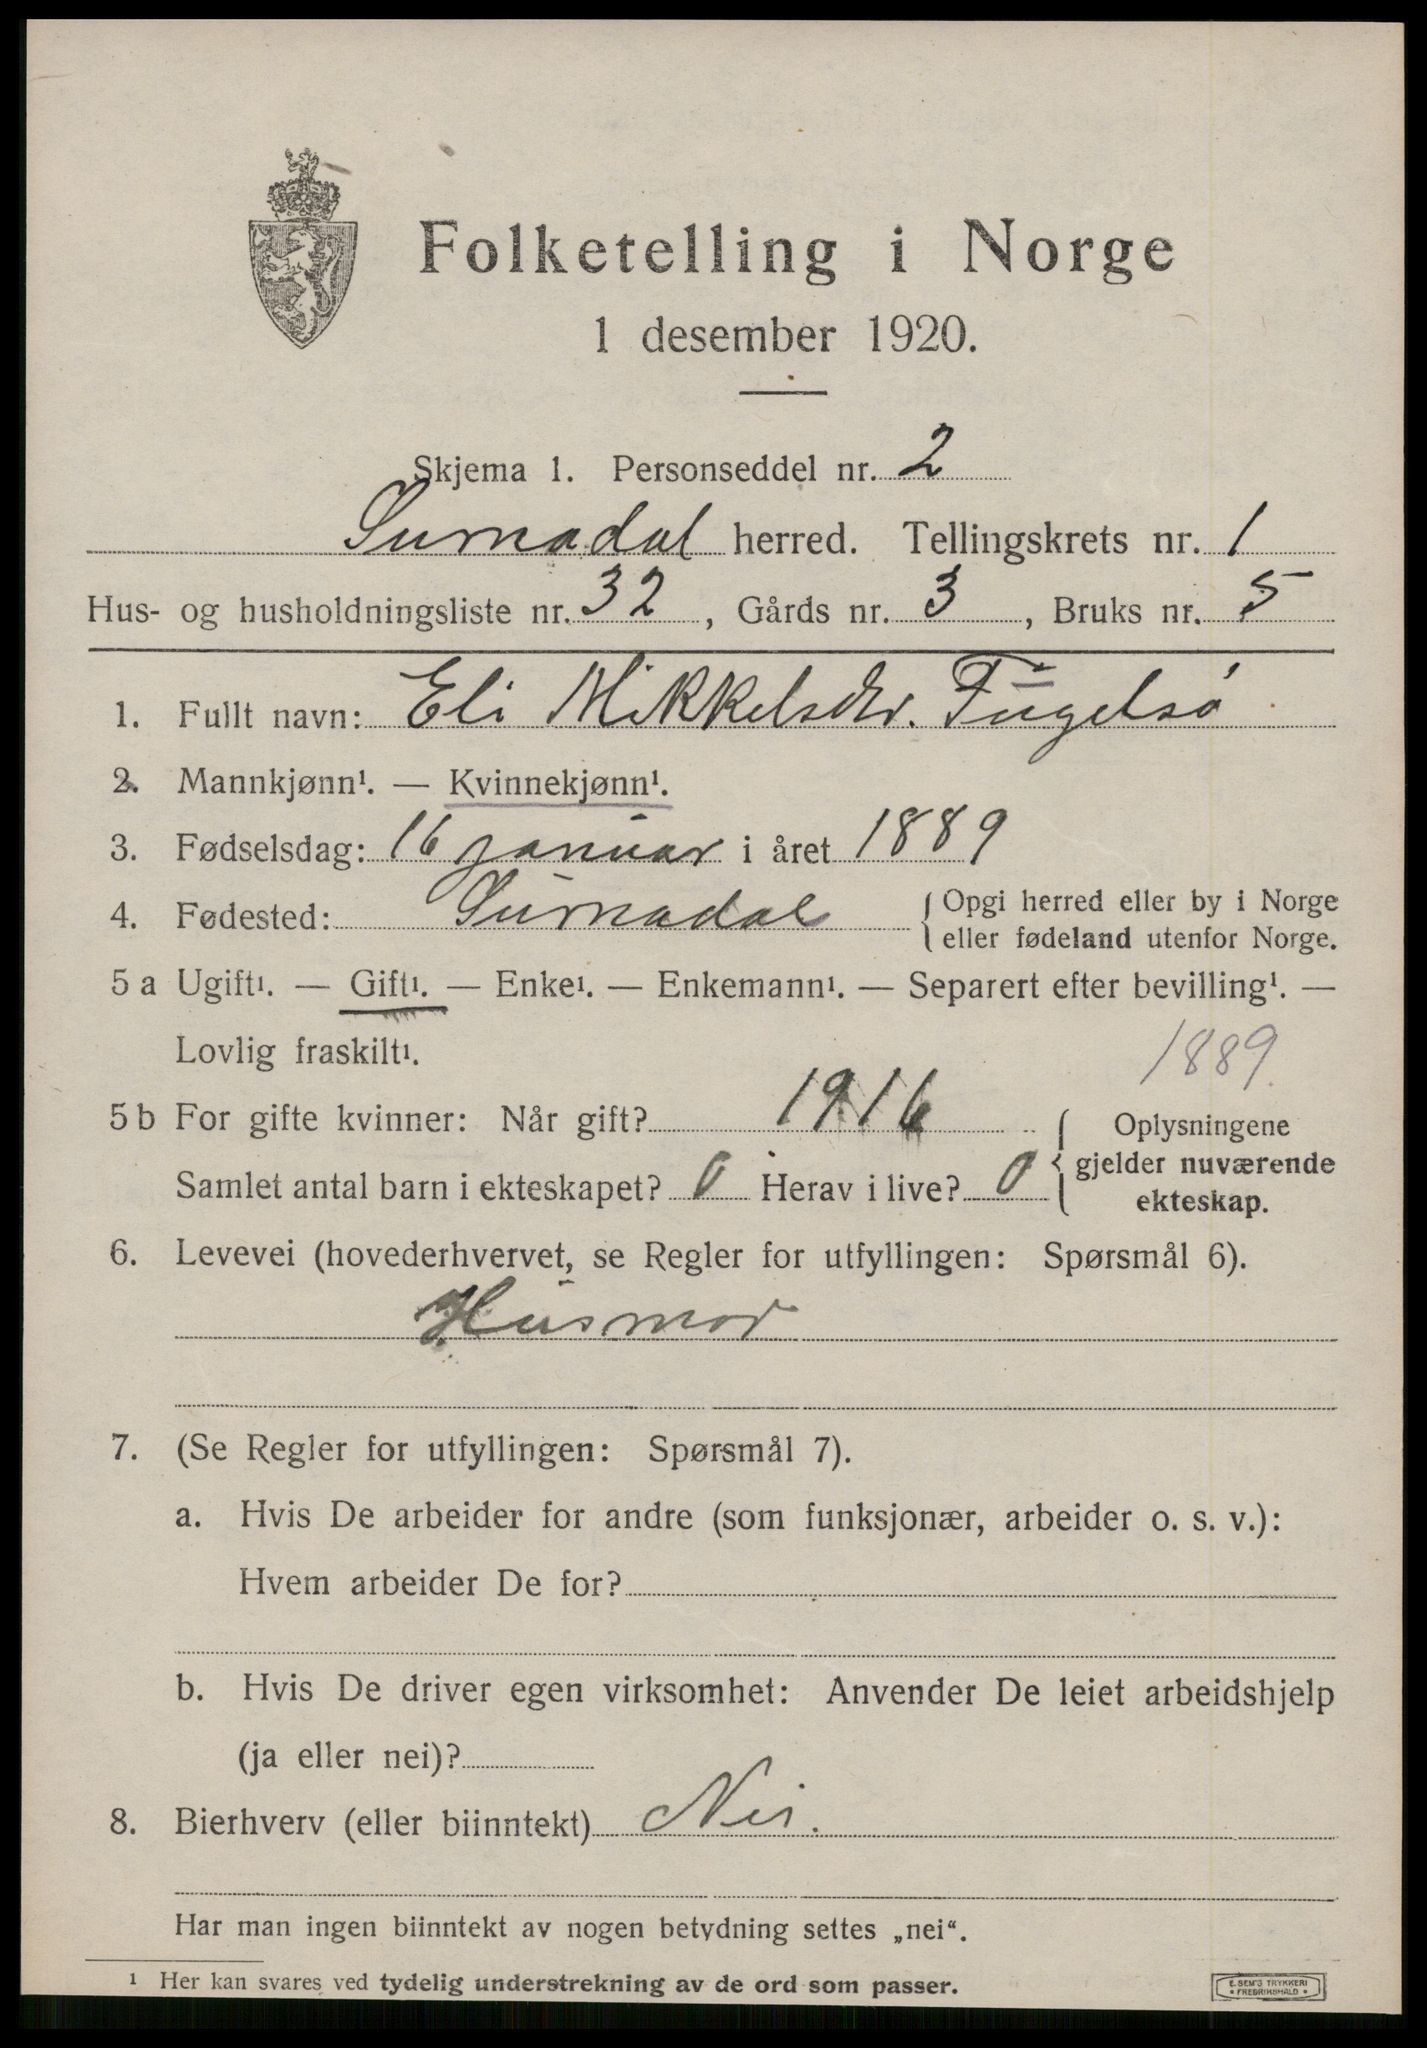 Folketelling i Norge
1 desember 1920.
Skjema 1. Personseddel nr. 2
Surnadal herred. Tellingskrets nr. 1
Hus- og husholdningsliste nr. 32, Gårds nr. 3, Bruks nr. 5
1. Fullt navn: Eli Mikkelsdtr. Fugelsø
2. Mannkjønn¹. — Kvinnekjønn¹.
3. Fødselsdag: 16 januar i året 1889
4. Fødested: Surnadal { Opgi herred eller by i Norge
eller fødeland utenfor Norge.
5 a Ugift¹. — Gift¹. — Enke¹. — Enkemann¹. — Separert efter bevilling¹. —
Lovlig fraskilt¹. 1889.
5 b For gifte kvinner: Når gift? 1916 { Oplysningene
gjelder nuværende
ekteskap.
Samlet antal barn i ekteskapet? 0 Herav i live? 0
6. Levevei (hovederhvervet, se Regler for utfyllingen: Spørsmål 6).
Husmor
7. (Se Regler for utfyllingen: Spørsmål 7).
a. Hvis De arbeider for andre (som funksjonær, arbeider o. s. v.):
Hvem arbeider De for?
b. Hvis De driver egen virksomhet: Anvender De leiet arbeidshjelp
(ja eller nei)?
8. Bierhverv (eller biinntekt) Nei.
Har man ingen biinntekt av nogen betydning settes „nei“.
¹ Her kan svares ved tydelig understrekning av de ord som passer.
E. SEM'S TRYKKERI
• FREDRIKSHALD •